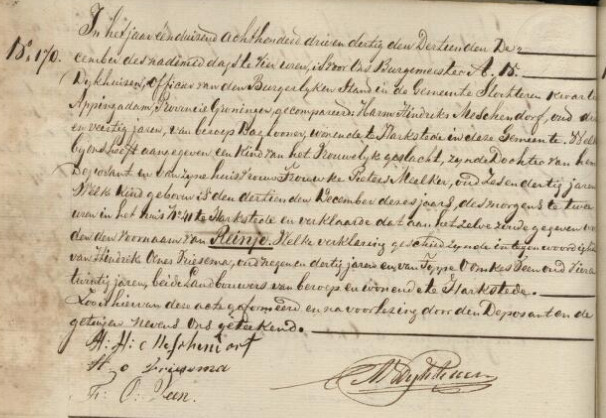 In het jaar eenduizend achthonderd drieendertig den Dertienden De=
No 170. cember des nademiddags te vier uren, is voor Ons Burgemeester A. B.
Dijkhuizen, Officier van den Burgerlyken Stand in de Gemeente Slochteren kwartier
Appingadam, Provincie Groningen, gecompareerd Harm Hindriks Meschendorf, oud drie
en veertig jaren, van beroep Daglooner, wonende te Harkstede in deze Gemeente, Welke
by ons heeft aangegeven een kind van het Vrouwelyk geslacht, zynde Dochter van hem
Deposant en van zyne huisvrouw Trouwke Pieters Mulder, oud Zes en dertig jaren
Welk kind geboren is den dertienden December dezes jaars, des morgens te twee
uren in het huis No 41 te Harkstede en verklaarde dat aan hetzelve zoude gegeven wor
den den voornaam van Reinje. Welke verklaring geschied zynde in tegenwoordigheid
van Hinderk Ones Friesema, oud negen en dertig jaren en van Foppe Oomkes Veen oud Vier en
twintig jaren, beide Landbouwers van beroep en wonende te Harkstede.
Zoo is hiervan deze acte geformeerd en na voorlezing door den Deposant en de
getuigen nevens Ons geteekend.
H: H: Meschendorf
H. O Friesema
F: O: Veen.
AB Dijkhuizen